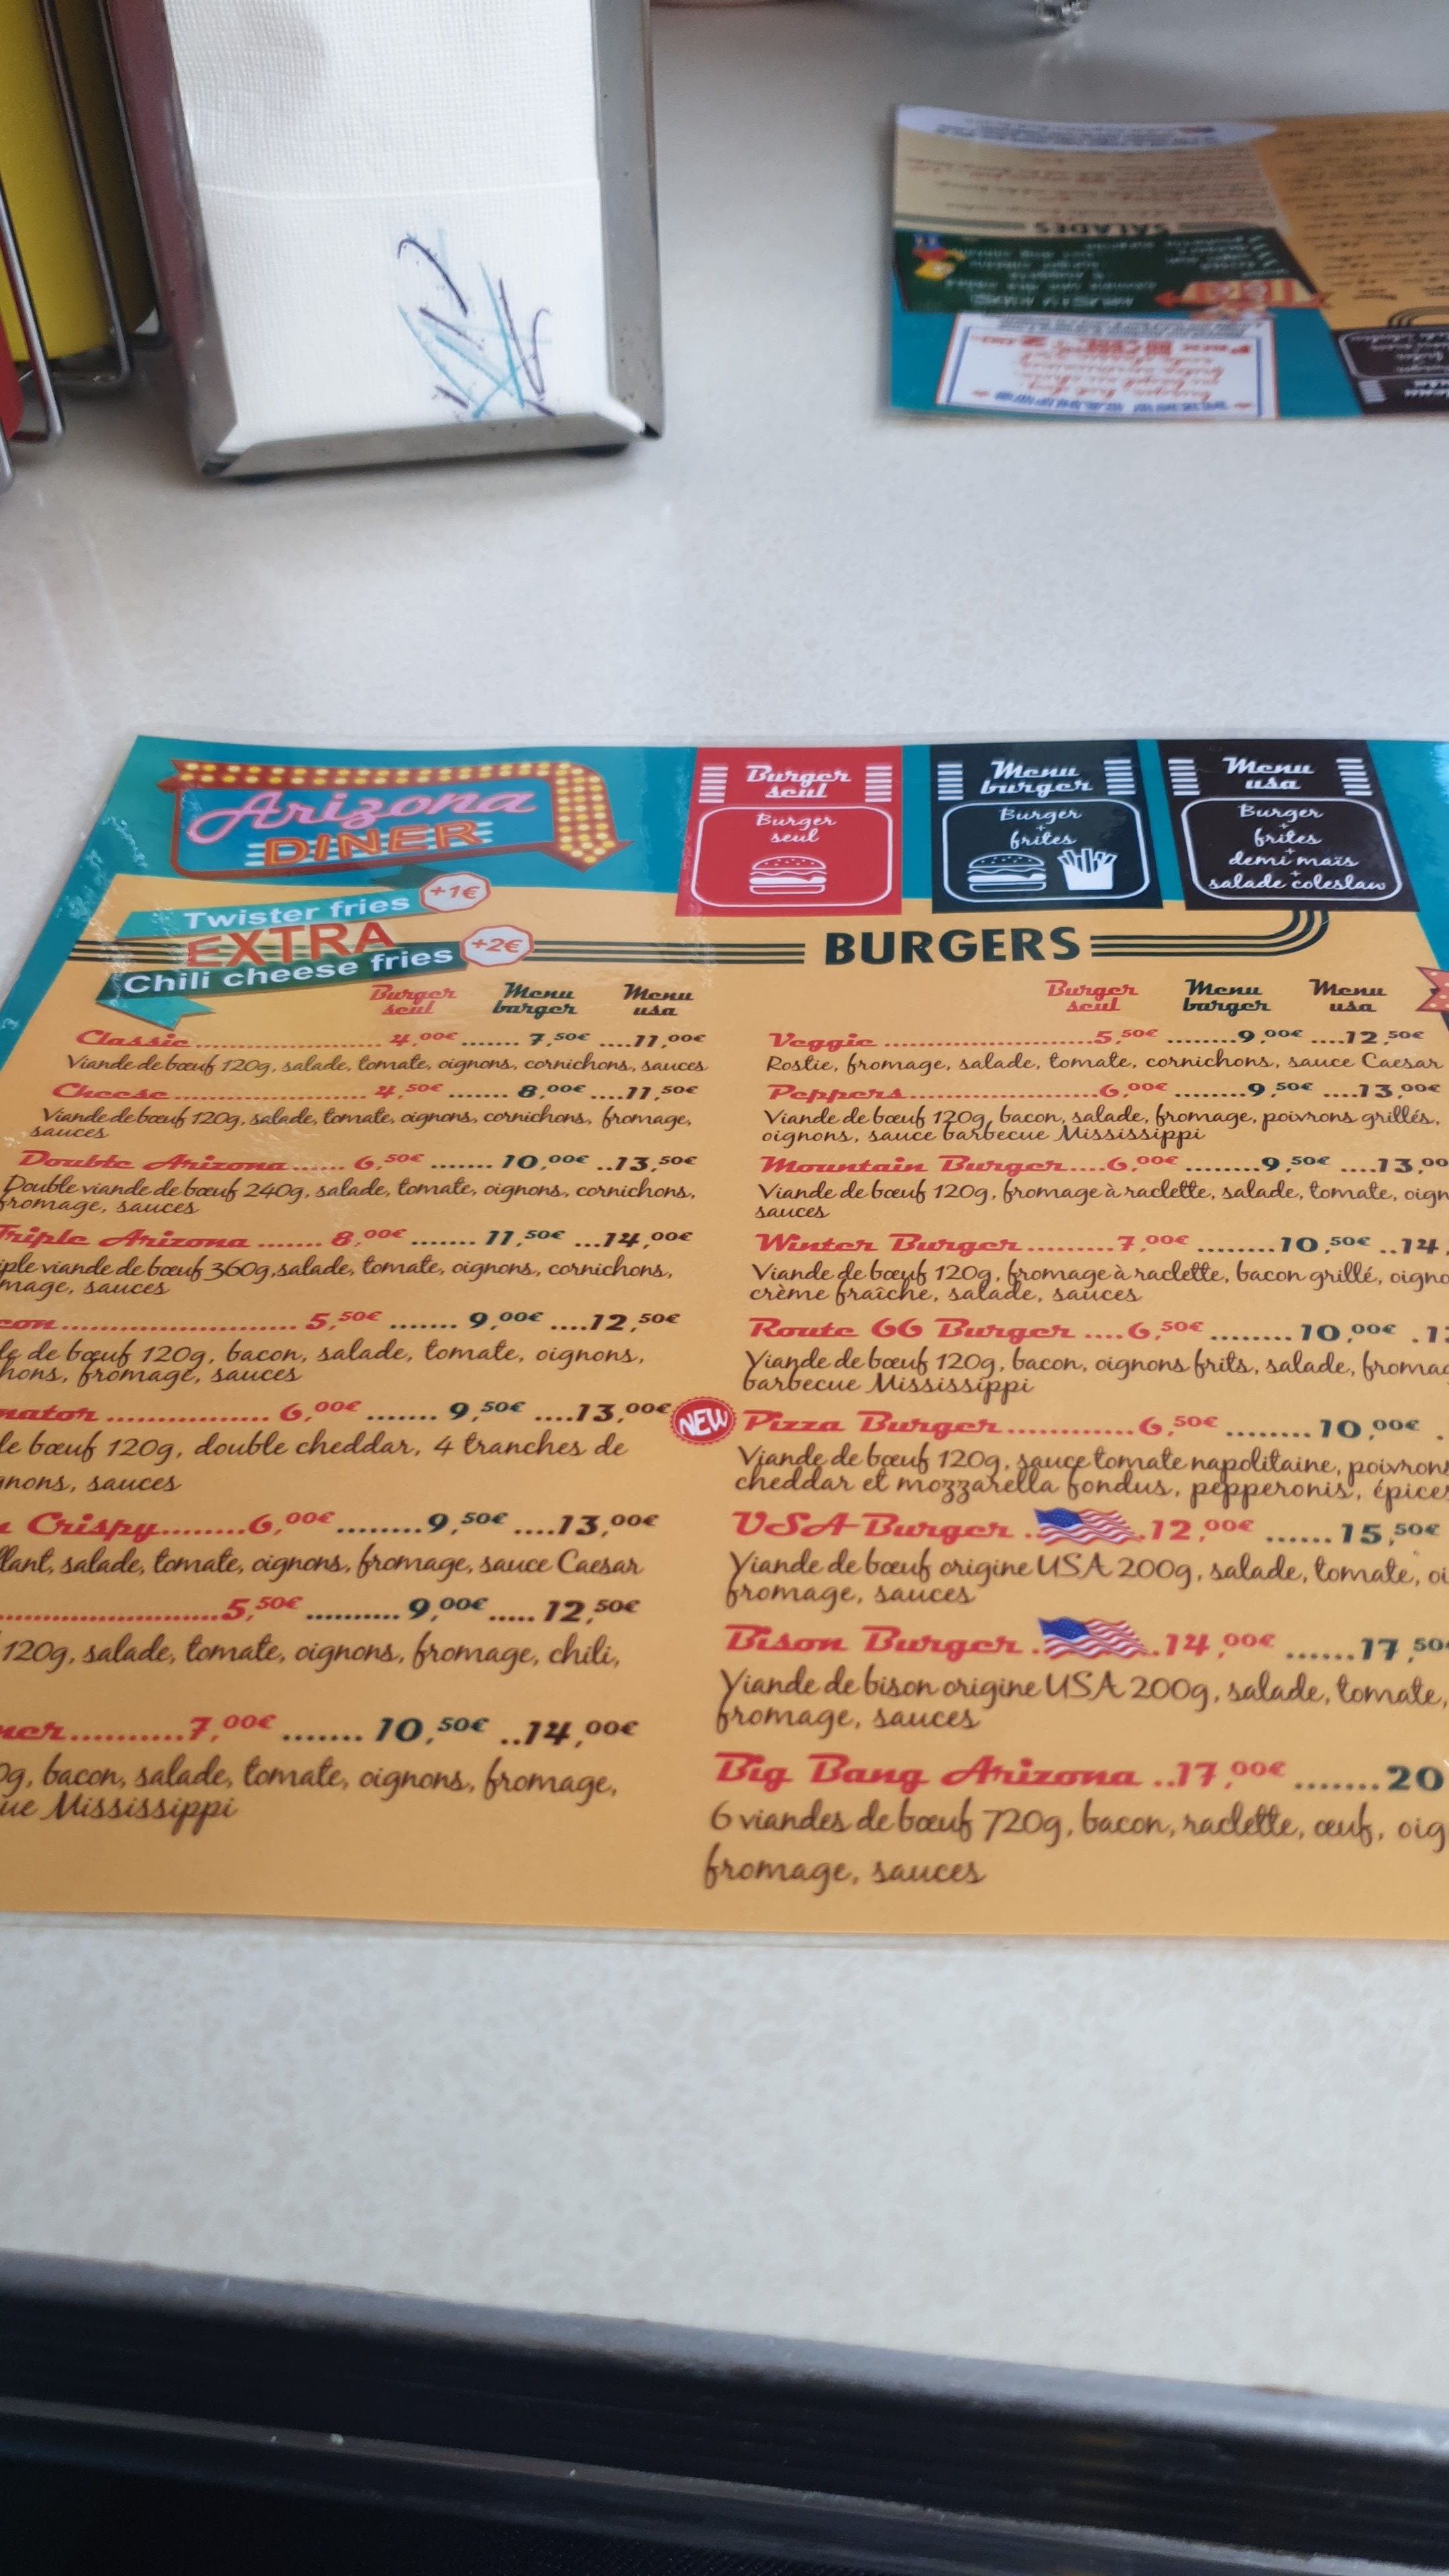 SALADES
Arizona
DINER
Burger
seul
Burger
seul
Menu
burger
Burger
+
frites
Menu
usa
Burger
+
frites
+
demi maïs
+
salade coleslaw
Twister fries +1€
EXTRA
Chili cheese fries +2€
BURGERS
Burger seul Menu burger Menu usa
Classic 4,00€ 7,50€ 11,00€
Viande de bœuf 120g, salade, tomate, oignons, cornichons, sauces
Cheese 4,50€ 8,00€ 11,50€
Viande de bœuf 120g, salade, tomate, oignons, cornichons, fromage,
sauces
Double Arizona 6,50€ 10,00€ 13,50€
Double viande de bœuf 240g, salade, tomate, oignons, cornichons,
fromage, sauces
Triple Arizona 8,00€ 11,50€ 14,00€
iple viande de bœuf 360g, salade, tomate, oignons, cornichons,
mage, sauces
con 5,50€ 9,00€ 12,50€
de bœuf 120g, bacon, salade, tomate, oignons,
hons, fromage, sauces
nator 6,00€ 9,50€ 13,00€
le bœuf 120g, double cheddar, 4 tranches de
gnons, sauces
Crispy 6,00€ 9,50€ 13,00€
llant, salade, tomate, oignons, fromage, sauce Caesar
5,50€ 9,00€ 12,50€
120g, salade, tomate, oignons, fromage, chili,
ner 7,00€ 10,50€ 14,00€
0g, bacon, salade, tomate, oignons, fromage,
ue Mississippi
Burger seul Menu burger Menu usa
Veggie 5,50€ 9,00€ 12,50€
Rostie, fromage, salade, tomate, cornichons, sauce Caesar
Peppers 6,00€ 9,50€ 13,00€
Viande de bœuf 120g, bacon, salade, fromage, poivrons grillés,
oignons, sauce barbecue Mississippi
Mountain Burger 6,00€ 9,50€ 13,00
Viande de bœuf 120g, fromage à raclette, salade, tomate, oign
sauces
Winter Burger 7,00€ 10,50€ 14,
Viande de bœuf 120g, fromage à raclette, bacon grillé, oigno
crème fraîche, salade, sauces
Route 66 Burger 6,50€ 10,00€ 1
Viande de bœuf 120g, bacon, oignons frits, salade, fromag
barbecue Mississippi
NEW Pizza Burger 6,50€ 10,00€
Viande de bœuf 120g, sauce tomate napolitaine, poivrons
cheddar et mozzarella fondus, pepperonis, épices
USA Burger 12,00€ 15,50€
Viande de bœuf origine USA 200g, salade, tomate, oi
fromage, sauces
Bison Burger 14,00€ 17,50
Viande de bison origine USA 200g, salade, tomate,
fromage, sauces
Big Bang Arizona 17,00€ 20
6 viandes de bœuf 720g, bacon, raclette, œuf, oig
fromage, sauces